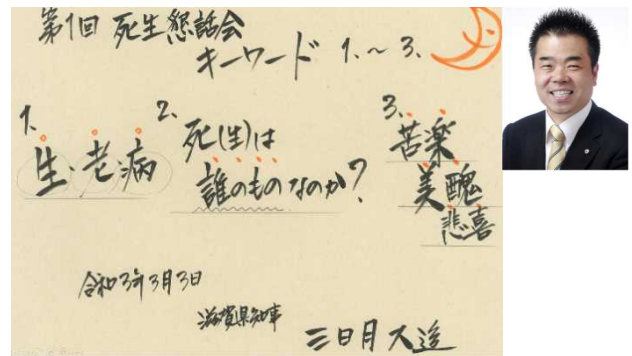 第1回 死生懇話会
キーワード 1.～3.
1.
生・老・病
2.
死(生)は
誰のものなのか?
3.
苦楽
美醜
悲喜
令和3年3月3日
滋賀県知事
三日月大造